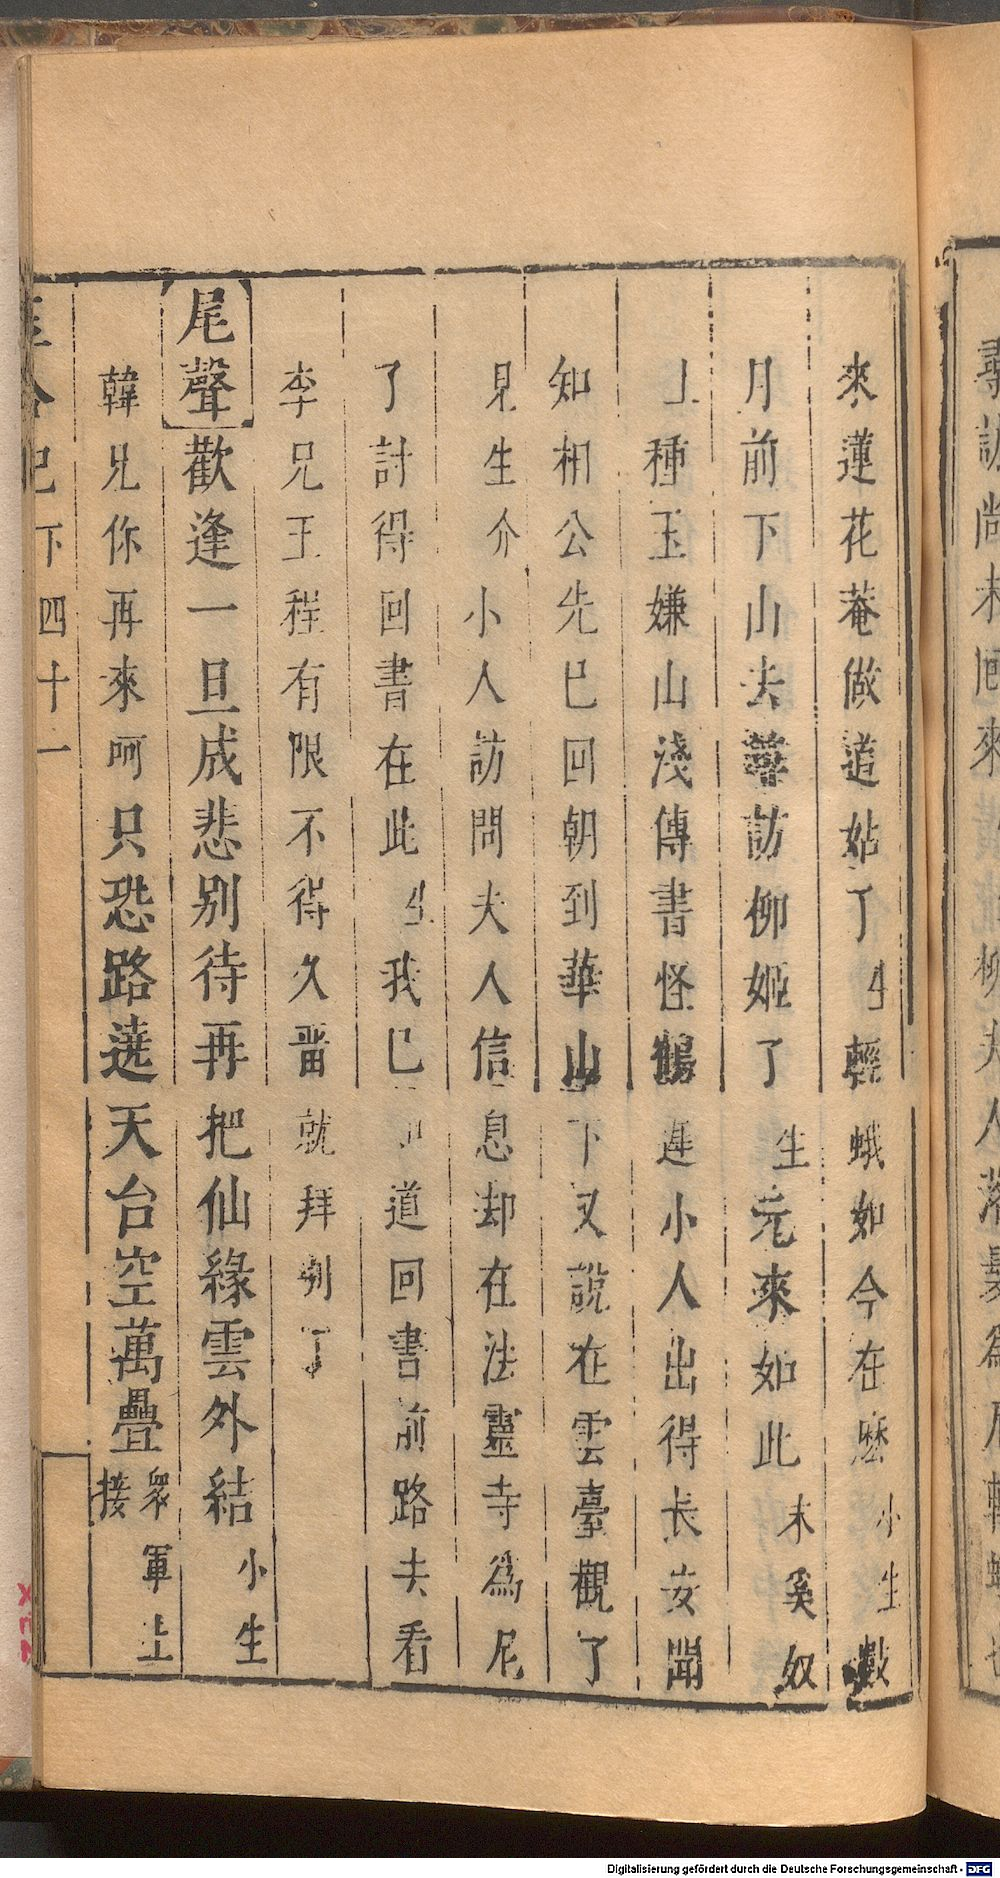 來蓮花菴做道姑了生輕蛾如今在麽小生數
月前下山去尋訪柳姬了生元來如此末奚奴
上種玉嫌山淺傳書怪鶴遲小人出得长安聞
知相公先已回朝到華山下又説在雲臺觀了
見生介小人訪問夫人信息却在法靈寺爲尼
了討得回書在此生我已知道回書前路去看
李兄王程有限不得久畱就拜別了
尾聲歡逢一旦成悲别待再把仙緣雲外結小生
韓兄你再來呵只恐路遶天台空萬疊衆軍上接
玉合記下四十一
尋訪尚未囘來
柳夫人落髮爲尼輕蛾也
Digitalisierung gefördert durch die Deutsche Forschungsgemeinschaft - DFG